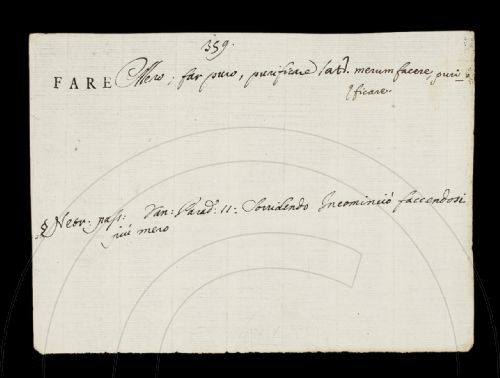 359.
FARE Mero; far puro, purificare lat: merum facere, puri
ficare.
§ Neut: pass: Dan: Parad: 11: Sorridendo Incominciò faccendosi
più mero